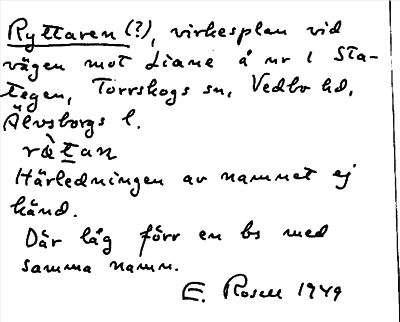 Ryttaren (?), virkesplan vid
vägen mot Liane å nr 1 Sta-
tegen, Torrskogs sn, Vedbo hd,
Älvsborgs l.
Härledningen av namnet ej
känd.
Där låg förr en bs med
samma namn.
E. Rosell 1949